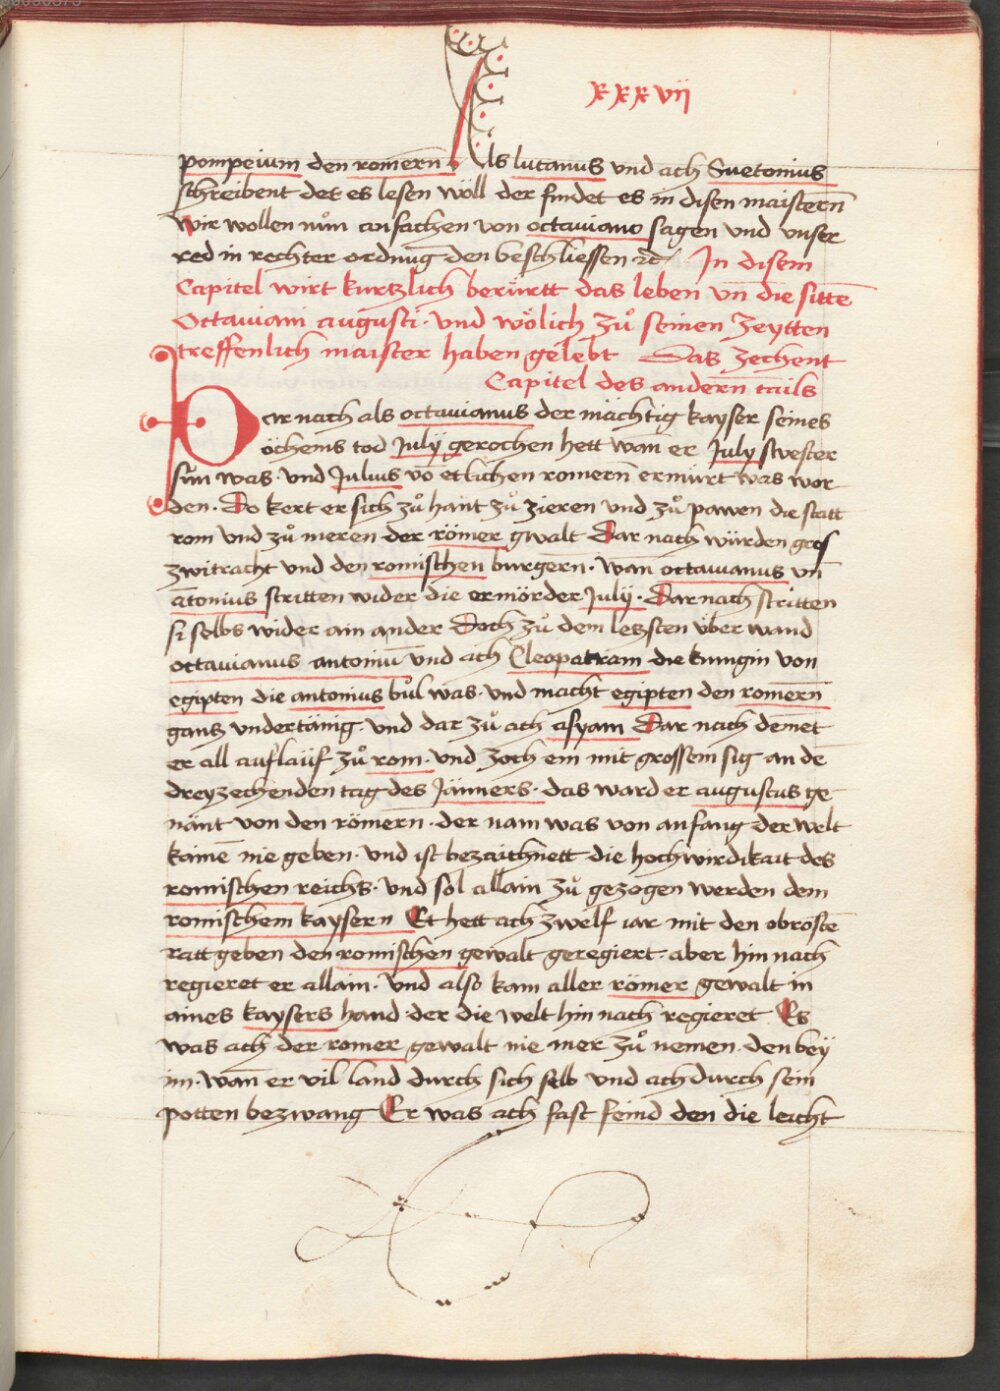 xxxvij
pompeium den romern̄ Als lucanus vnd ach Suetonius
schreibent der es lesen wöll der findet es in disen maistern̄
wir wollen nům ansachen von octauiano sagen vnd vnser
red in rechter ordnūg den beschliessen ꝛc̄ In disem
Capitel wirt kurtzlich berürtt das leben vn̄ die sittē
Octauiani augusti · vnd wölich zů seinen zeytten
treffenlich maister haben gelebt Das zechent
Capitel des andern̄ tails
Dar nach als octauianus der mächtig kayser seines
öchems tod Julij gerochen hett wan̄ er July swester
sun was · vnd Julius vō etlichen romern̄ ermürt was wor
den · Do kert er sich zů hant zů zieren vnd zů pawen die statt
rom vnd zů meren der römer gwalt Dar nach würden gros
zwitracht vnd den romischen burgern̄ · wan̄ octauianus vn̄
ātonius stritten wider die ermörder July · Dar nach stritten
si selbs wider ain ander Doch zů dem letzsten über wand
octauianus antoniū vnd ach Cleopatram die kungin von
egipten die antonius bůl was · vnd macht egipten den romern̄
gantz vndertänig · vnd dar zů ach asyam Dar nach demet
er all aufläuf zů rom · vnd zoch ein mit grossem sig an dē
dreyzechenden tag des Jänners · das ward er augustus ge
nant von den römern · der nam was von anfang der welt
kainē nie geben · vnd ist bezaichnett die hochwirdikait des
romischen reichs · vnd sol allain zů gezogen werden dem
romischem kaysern Er hett ach zwelf iar mit den obrostē
ratt geben den romischen gewalt geregiert · aber hin nach
regieret er allain · vnd also kam aller römer gewalt in
aines kaysers hand · der die welt hin nach regieret Es
was ach der romer gewalt nie mer zů nemen · den bey
im · wan̄ er vil land durch sich selb vnd ach durch sein
potten bezwang Er was ach fast feind den die leicht